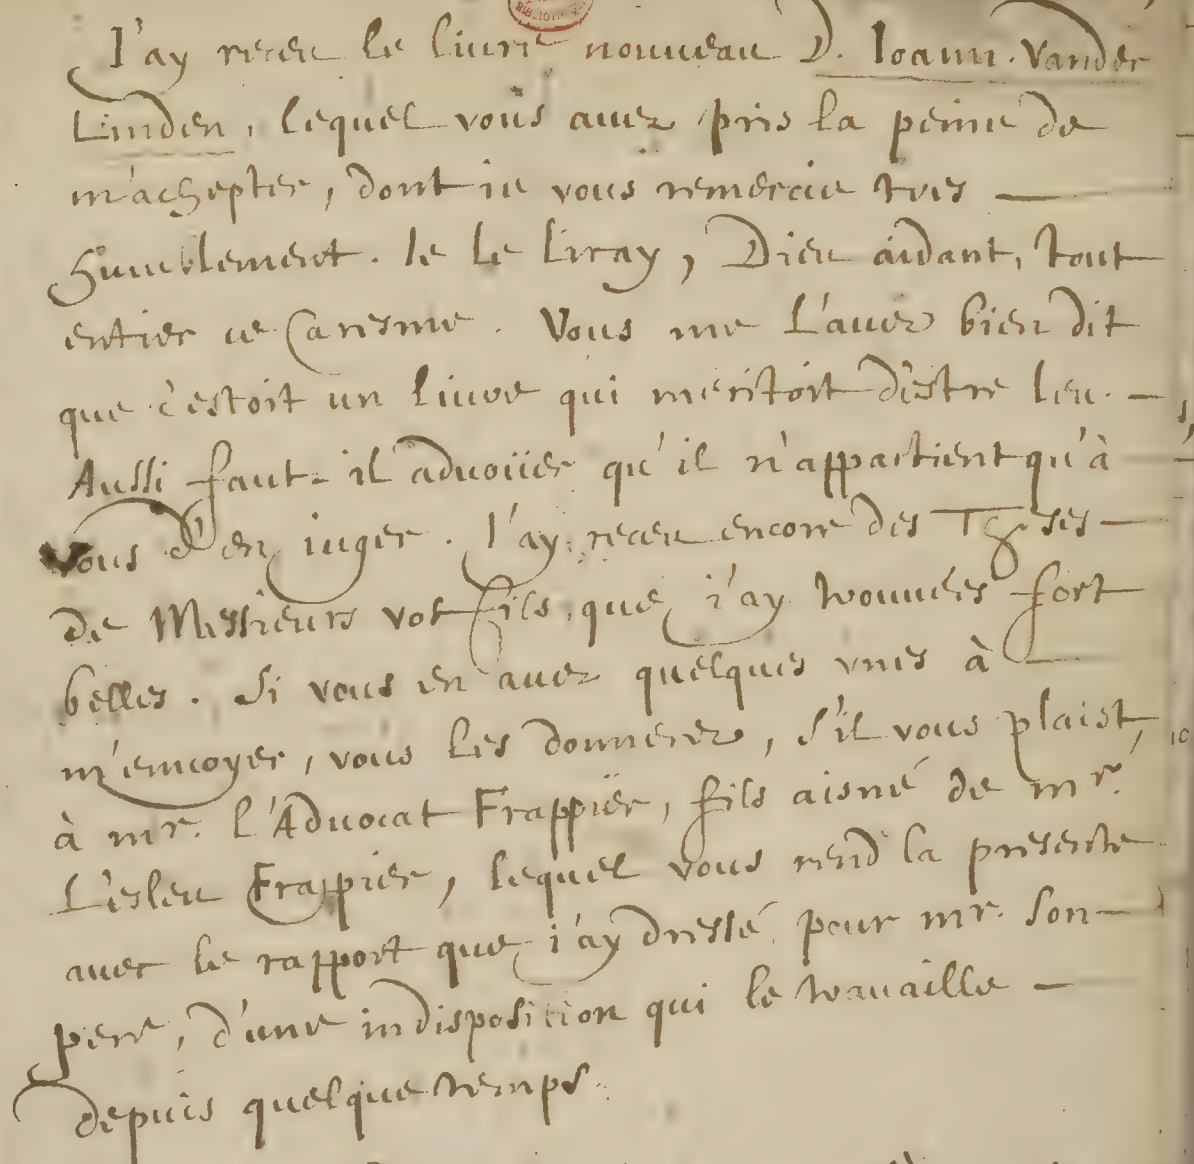 J'ay receu le liure nouueau D. Ioann. Vander
Linden, lequel vous auez pris la peine de
m'achepter, dont ie vous remercie tres —
humblement. Ie le liray, Dieu aidant, tout
entier ce Caresme. Vous me l'auez bien dit
que c'estoit un liure qui meritoit d'estre leu. —
Aussi faut-il aduoüer qu'il n'appartient qu'à
vous d'en iuger. J'ay receu encore des Theses —
de Messieurs vos fils, que j'ay trouuées fort
belles. Si vous en auez quelques vnes à —
m'enuoyer, vous les donnerez, s'il vous plaist,
à mr. l'Aduocat Frappier, fils aisné de mr.
L'esleu Frappier, lequel vous rend la presente
auec le rapport que j'ay dressé pour mr. son —
pere, d'une indisposition qui le trauaille —
depuis quelque temps.